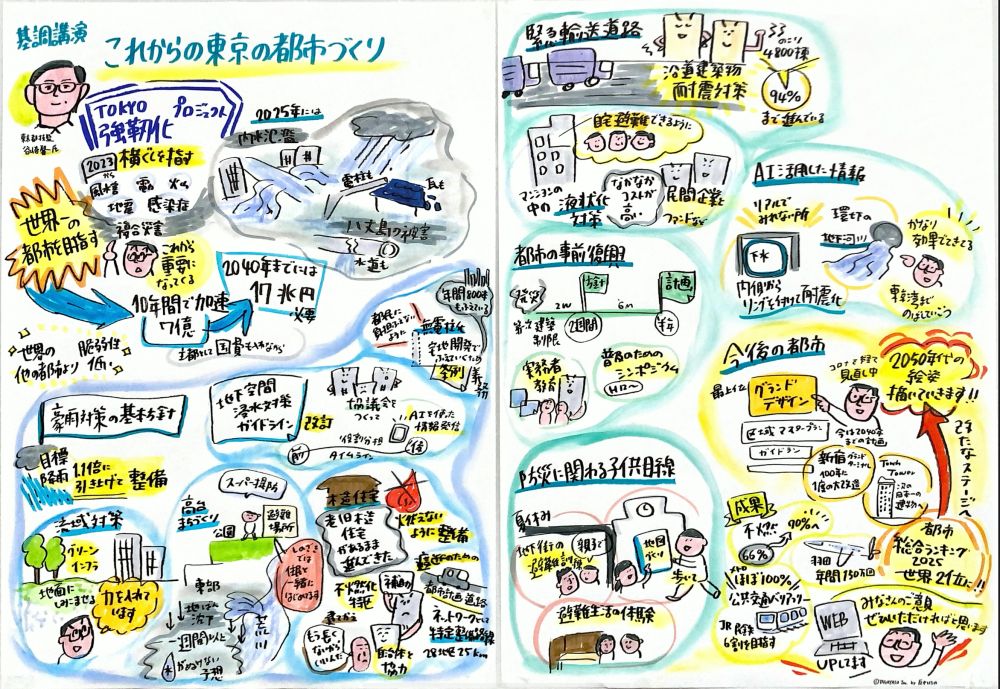 基調講演
これからの東京の都市づくり
TOKYO
強靭化
プロジェクト
2023
から
横ぐしを指す
風水害
電
火山
地震
感染症
複合災害
これから
重要に
なってくる
世界一の
都市を目指す
2025年には
内水氾濫
電柱も
瓦も
八丈島の被害
水道も
10年間で加速
7億
2040年までには
17兆円
必要
国費も入れながら
世界の
他の都市より
脆弱性
低い
都民に
負担かからない
ように
無電柱化
年間800本
もふえている
宅地開発で
ふえていくため
条例
義務
豪雨対策の基本方針
目標
降雨
1.1倍に
引き上げて
整備
地下空間
浸水対策
ガイドライン
改訂
協議会を
つくって
AIを使った
情報発信
役割分担
タイムライン
前
後
流域対策
グリーン
インフラ
地面に
しみこませる
力を入れて
います
高台
まちづくり
スーパー堤防
公園
避難
場所
東部
地ばん
沈下
荒川
一週間以上
水
予想
しのざき
では
住民と
一緒に
はじめてます
木造住宅
老旧木造
住宅
があるまま
進んできた
燃えない
ように
整備
不燃化
特区
建てかえ
補助
もう長く
ないから
いいんだ
自治体と
協力
延焼のための
都市計画道路
ネットワークして
特定整備路線
28地区 25km
緊急輸送道路
のこり
4800棟
沿道建築物
耐震対策
94%
まで進んでいる
自宅避難できるように
マンションの
中の
液状化
対策
なかなか
コストが
高い
民間企業と
ファンドなど
都市の事前復興
震災
方針
計画
2W
6m
2週間
半年
建築
制限
実務者
教育
普及のための
シンポジウム
HELLO〜
防災に関わる子供目線
夏休み
地下街の
避難訓練
親子で
地図
づくり
歩いて
避難生活の体験
AI活用した情報
リアルで
みれない所
下水
内側から
リングを付けて耐震化
環七下の
地下河川
かなり
効果でてきてる
東京湾まで
のばしていこう
今後の都市
最上イム
グランド
デザイン
コロナを経て
見直し中
2050年代の
絵姿
描いていきます!!
区域マスタープラン
今は2040年
までの計画
ガイドラン
新宿グランド
ターミナル
100年に
1度の大改造
Torch
Tower
次の
日本一の
建物へ
またなステージへ
成果
不燃
66%
70%へ
羽田
年間150万回
メトロ
ほぼ100%!
公共交通バリアフリー
JR 民鉄
6割を目指す
都市
総合ランキング
2025
世界2位に!!
みなさんのご意見
ぜひいただければと思います
WEB
UPしてます